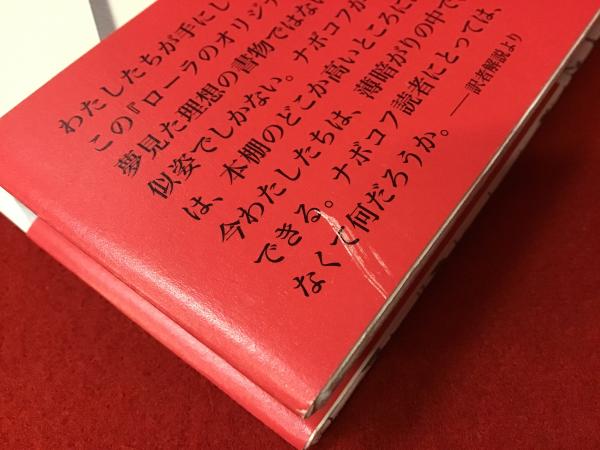 わたしたちが手にし
この『ローラのオリジナ
夢見た理想の書物ではない
似姿でしかない。ナボコフが
は、本棚のどこか高いところに
今わたしたちは、薄暗がりの中で、
できる。ナボコフ読者にとっては、
なくて何だろうか。
――訳者解説より